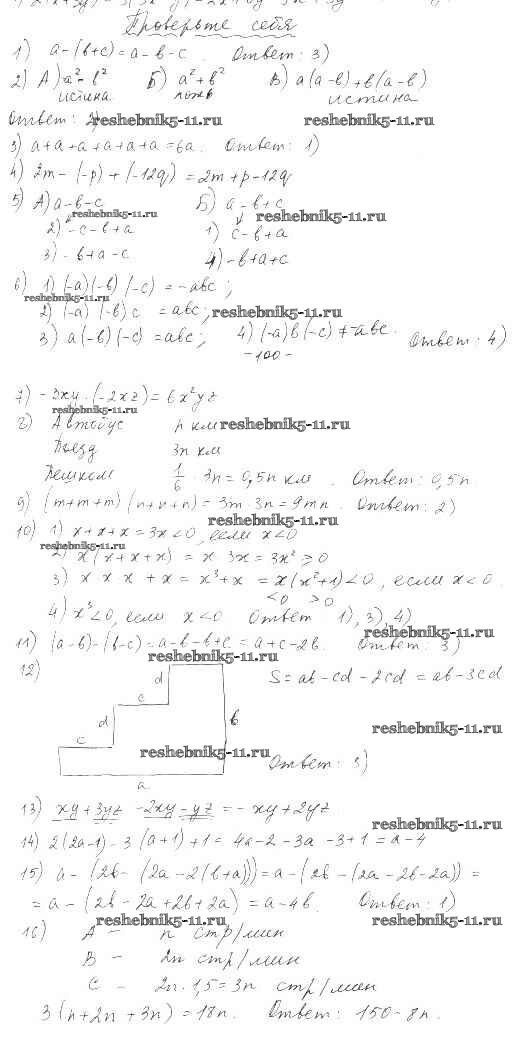 Проверьте себя
1) a-(b+c)=a-b-c. Ответ: 3)
2) А) a²-b² Б) a²+b² В) a(a-b)+b(a-b)
истина ложь истина
Ответ: 2)
reshebnik5-11.ru reshebnik5-11.ru
3) a+a+a+a+a+a=6a. Ответ: 1)
4) 2m-(-p)+(-12q)=2m+p-12q
5) А) a-b-c Б) a-b+c
reshebnik5-11.ru reshebnik5-11.ru
2) -c-b+a 1) c-b+a
3) -b+a-c 4) -b+a+c
6) 1) (-a)(-b)(-c)=-abc;
reshebnik5-11.ru
2) (-a)(-b)c=abc;
reshebnik5-11.ru
3) a(-b)(-c)=abc; 4) (-a)b(-c)≠-abc. Ответ: 4)
-100-
7) -3xy·(-2xz)=6x²yz
reshebnik5-11.ru
8) Автобус n км
reshebnik5-11.ru
Поезд 3n км
Пешком 1/6·3n=0,5n км. Ответ: 0,5n.
9) (m+m+m)(n+n+n)=3m·3n=9mn. Ответ: 2)
reshebnik5-11.ru
10) 1) x+x+x=3x<0, если x<0
reshebnik5-11.ru
2) x(x+x+x)=x·3x=3x²≥0
3) x x x+x=x³+x=x(x²+1)<0, если x<0.
<0 >0
4) x³<0, если x<0. Ответ: 1), 3), 4)
reshebnik5-11.ru
11) (a-b)-(b-c)=a-b-b+c=a+c-2b. Ответ: 3)
reshebnik5-11.ru
12) d S=ab-cd-2cd=ab-3cd
c
d b
reshebnik5-11.ru
c
reshebnik5-11.ru Ответ: 3)
a
13) xy+3yz-2xy-yz=-xy+2yz
reshebnik5-11.ru
14) 2(2a-1)-3(a+1)+1=4a-2-3a-3+1=a-4
15) a-(2b-(2a-2(b+a)))=a-(2b-(2a-2b-2a))=
=a-(2b-2a+2b+2a)=a-4b. Ответ: 1)
reshebnik5-11.ru reshebnik5-11.ru
16) A - n стр/мин
B - 2n стр/мин
C - 2n·1,5=3n стр/мин
3(n+2n+3n)=18n. Ответ: 150-8n.